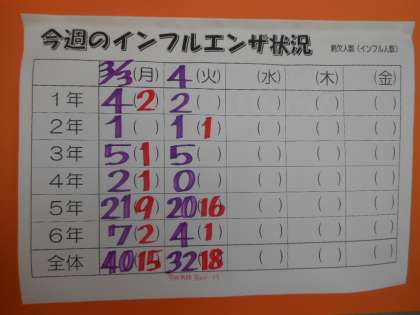 今週のインフルエンザ状況 病欠人数(インフル人数)
3/3(月) 4(火) (水) (木) (金)
1年 4(2) 2( ) ( ) ( ) ( )
2年 1( ) 1(1) ( ) ( ) ( )
3年 5(1) 5( ) ( ) ( ) ( )
4年 2(1) 0( ) ( ) ( ) ( )
5年 21(9) 20(16) ( ) ( ) ( )
6年 7(2) 4(1) ( ) ( ) ( )
全体 40(15) 32(18) ( ) ( ) ( )